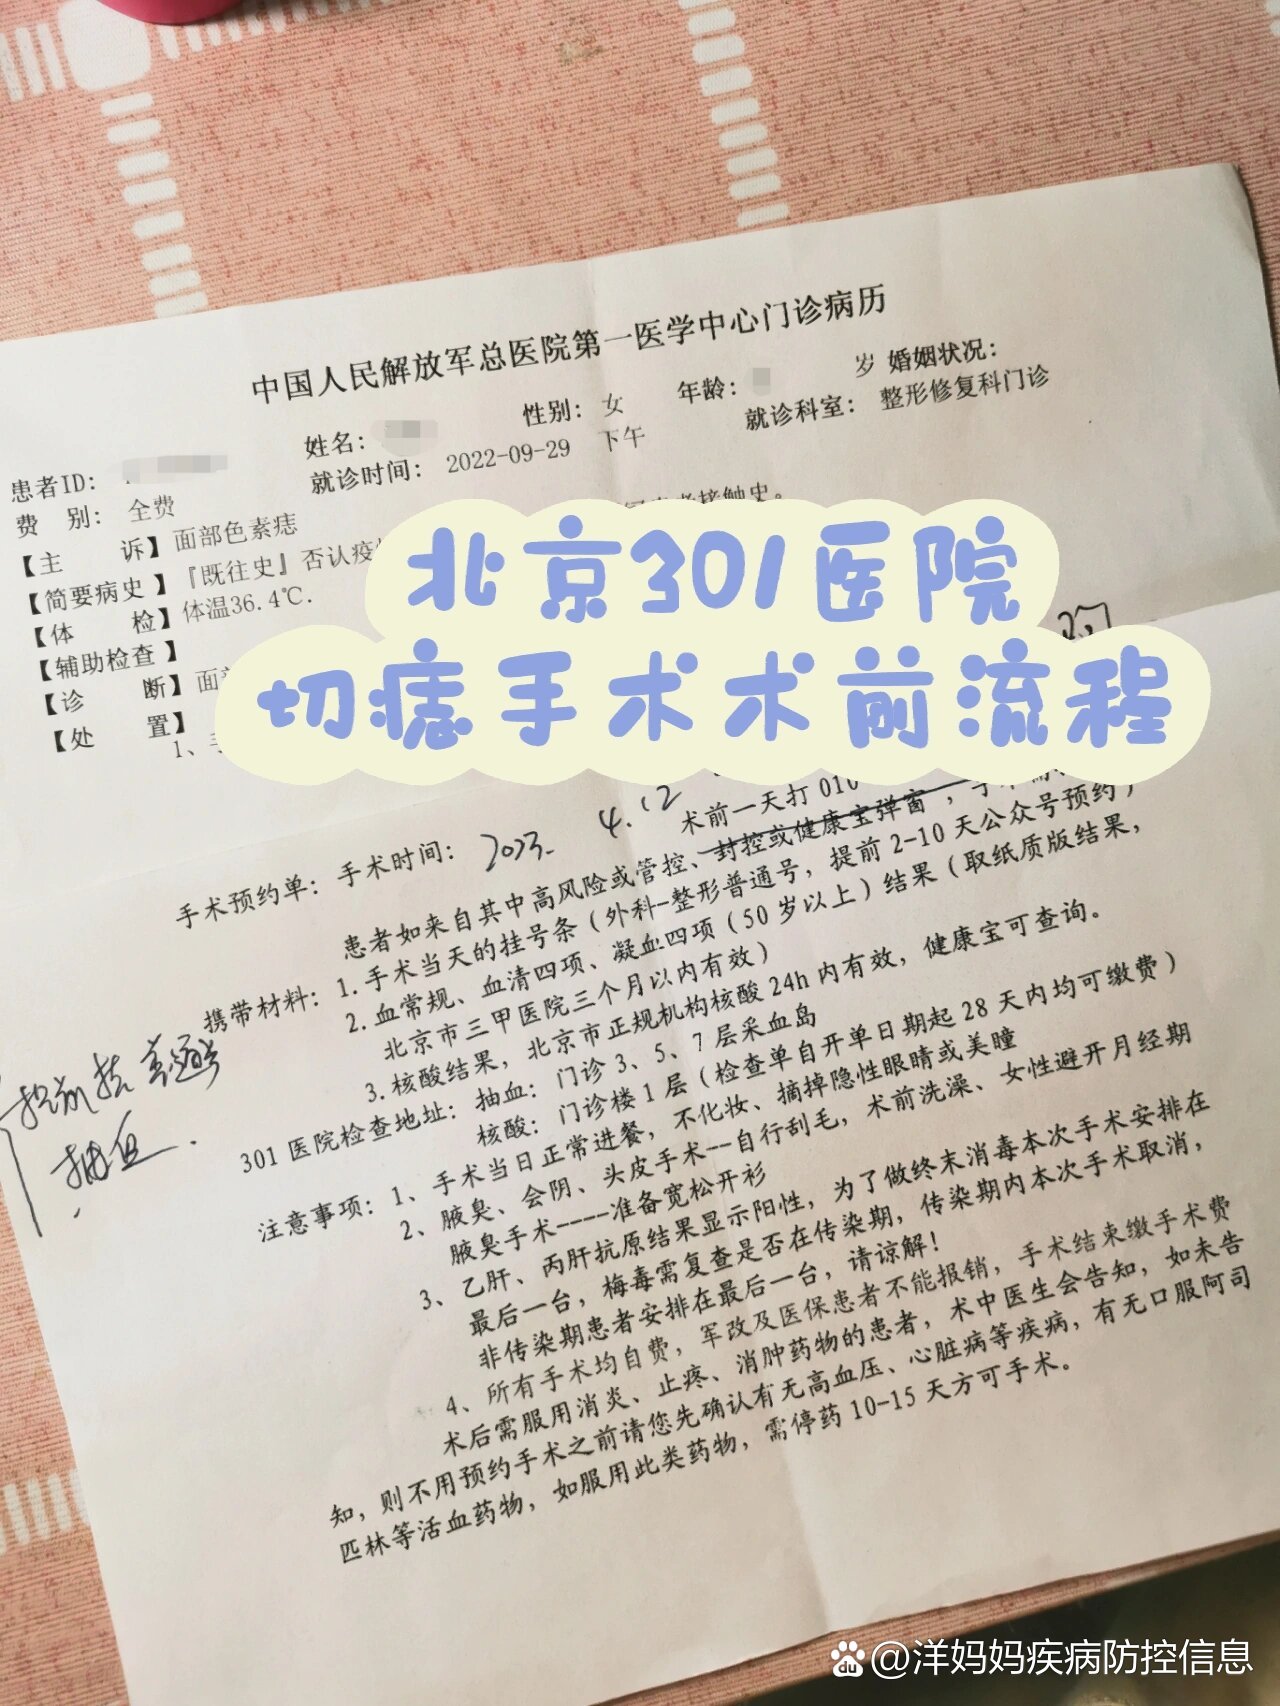 中国人民解放军总医院第一医学中心门诊病历
患者ID: 姓名: 性别: 女 年龄: 岁 婚姻状况:
费 别: 全费 就诊时间: 2022-09-29 下午 就诊科室: 整形修复科门诊
【主 诉】面部色素痣
【简要病史】『既往史』否认疫 接触史。
【体 检】体温36.4℃.
【辅助检查】
【诊 断】面
【处 置】
1、
北京301医院
切痣手术术前流程
手术预约单: 手术时间: 2023. 4.12 术前一天打010
患者如来自其中高风险或管控、封控或健康宝弹窗,
携带材料: 1.手术当天的挂号条(外科-整形普通号,提前2-10天公众号预约)
2.血常规、血清四项、凝血四项(50岁以上)结果(取纸质版结果,
北京市三甲医院三个月以内有效)
3.核酸结果,北京市正规机构核酸24h内有效,健康宝可查询。
301医院检查地址: 抽血: 门诊3、5、7层采血岛
核酸: 门诊楼1层(检查单自开单日期起28天内均可缴费)
抽血.
注意事项: 1、手术当日正常进餐,不化妆、摘掉隐性眼睛或美瞳
2、腋臭、会阴、头皮手术--自行刮毛,术前洗澡、女性避开月经期
腋臭手术----准备宽松开衫
3、乙肝、丙肝抗原结果显示阳性,为了做终末消毒本次手术安排在
最后一台,梅毒需复查是否在传染期,传染期内本次手术取消,
非传染期患者安排在最后一台,请谅解!
4、所有手术均自费,军改及医保患者不能报销,手术结束缴手术费
术后需服用消炎、止疼、消肿药物的患者,术中医生会告知,如未告
知,则不用预约手术之前请您先确认有无高血压、心脏病等疾病,有无口服阿司
匹林等活血药物,如服用此类药物,需停药10-15天方可手术。
@洋妈妈疾病防控信息